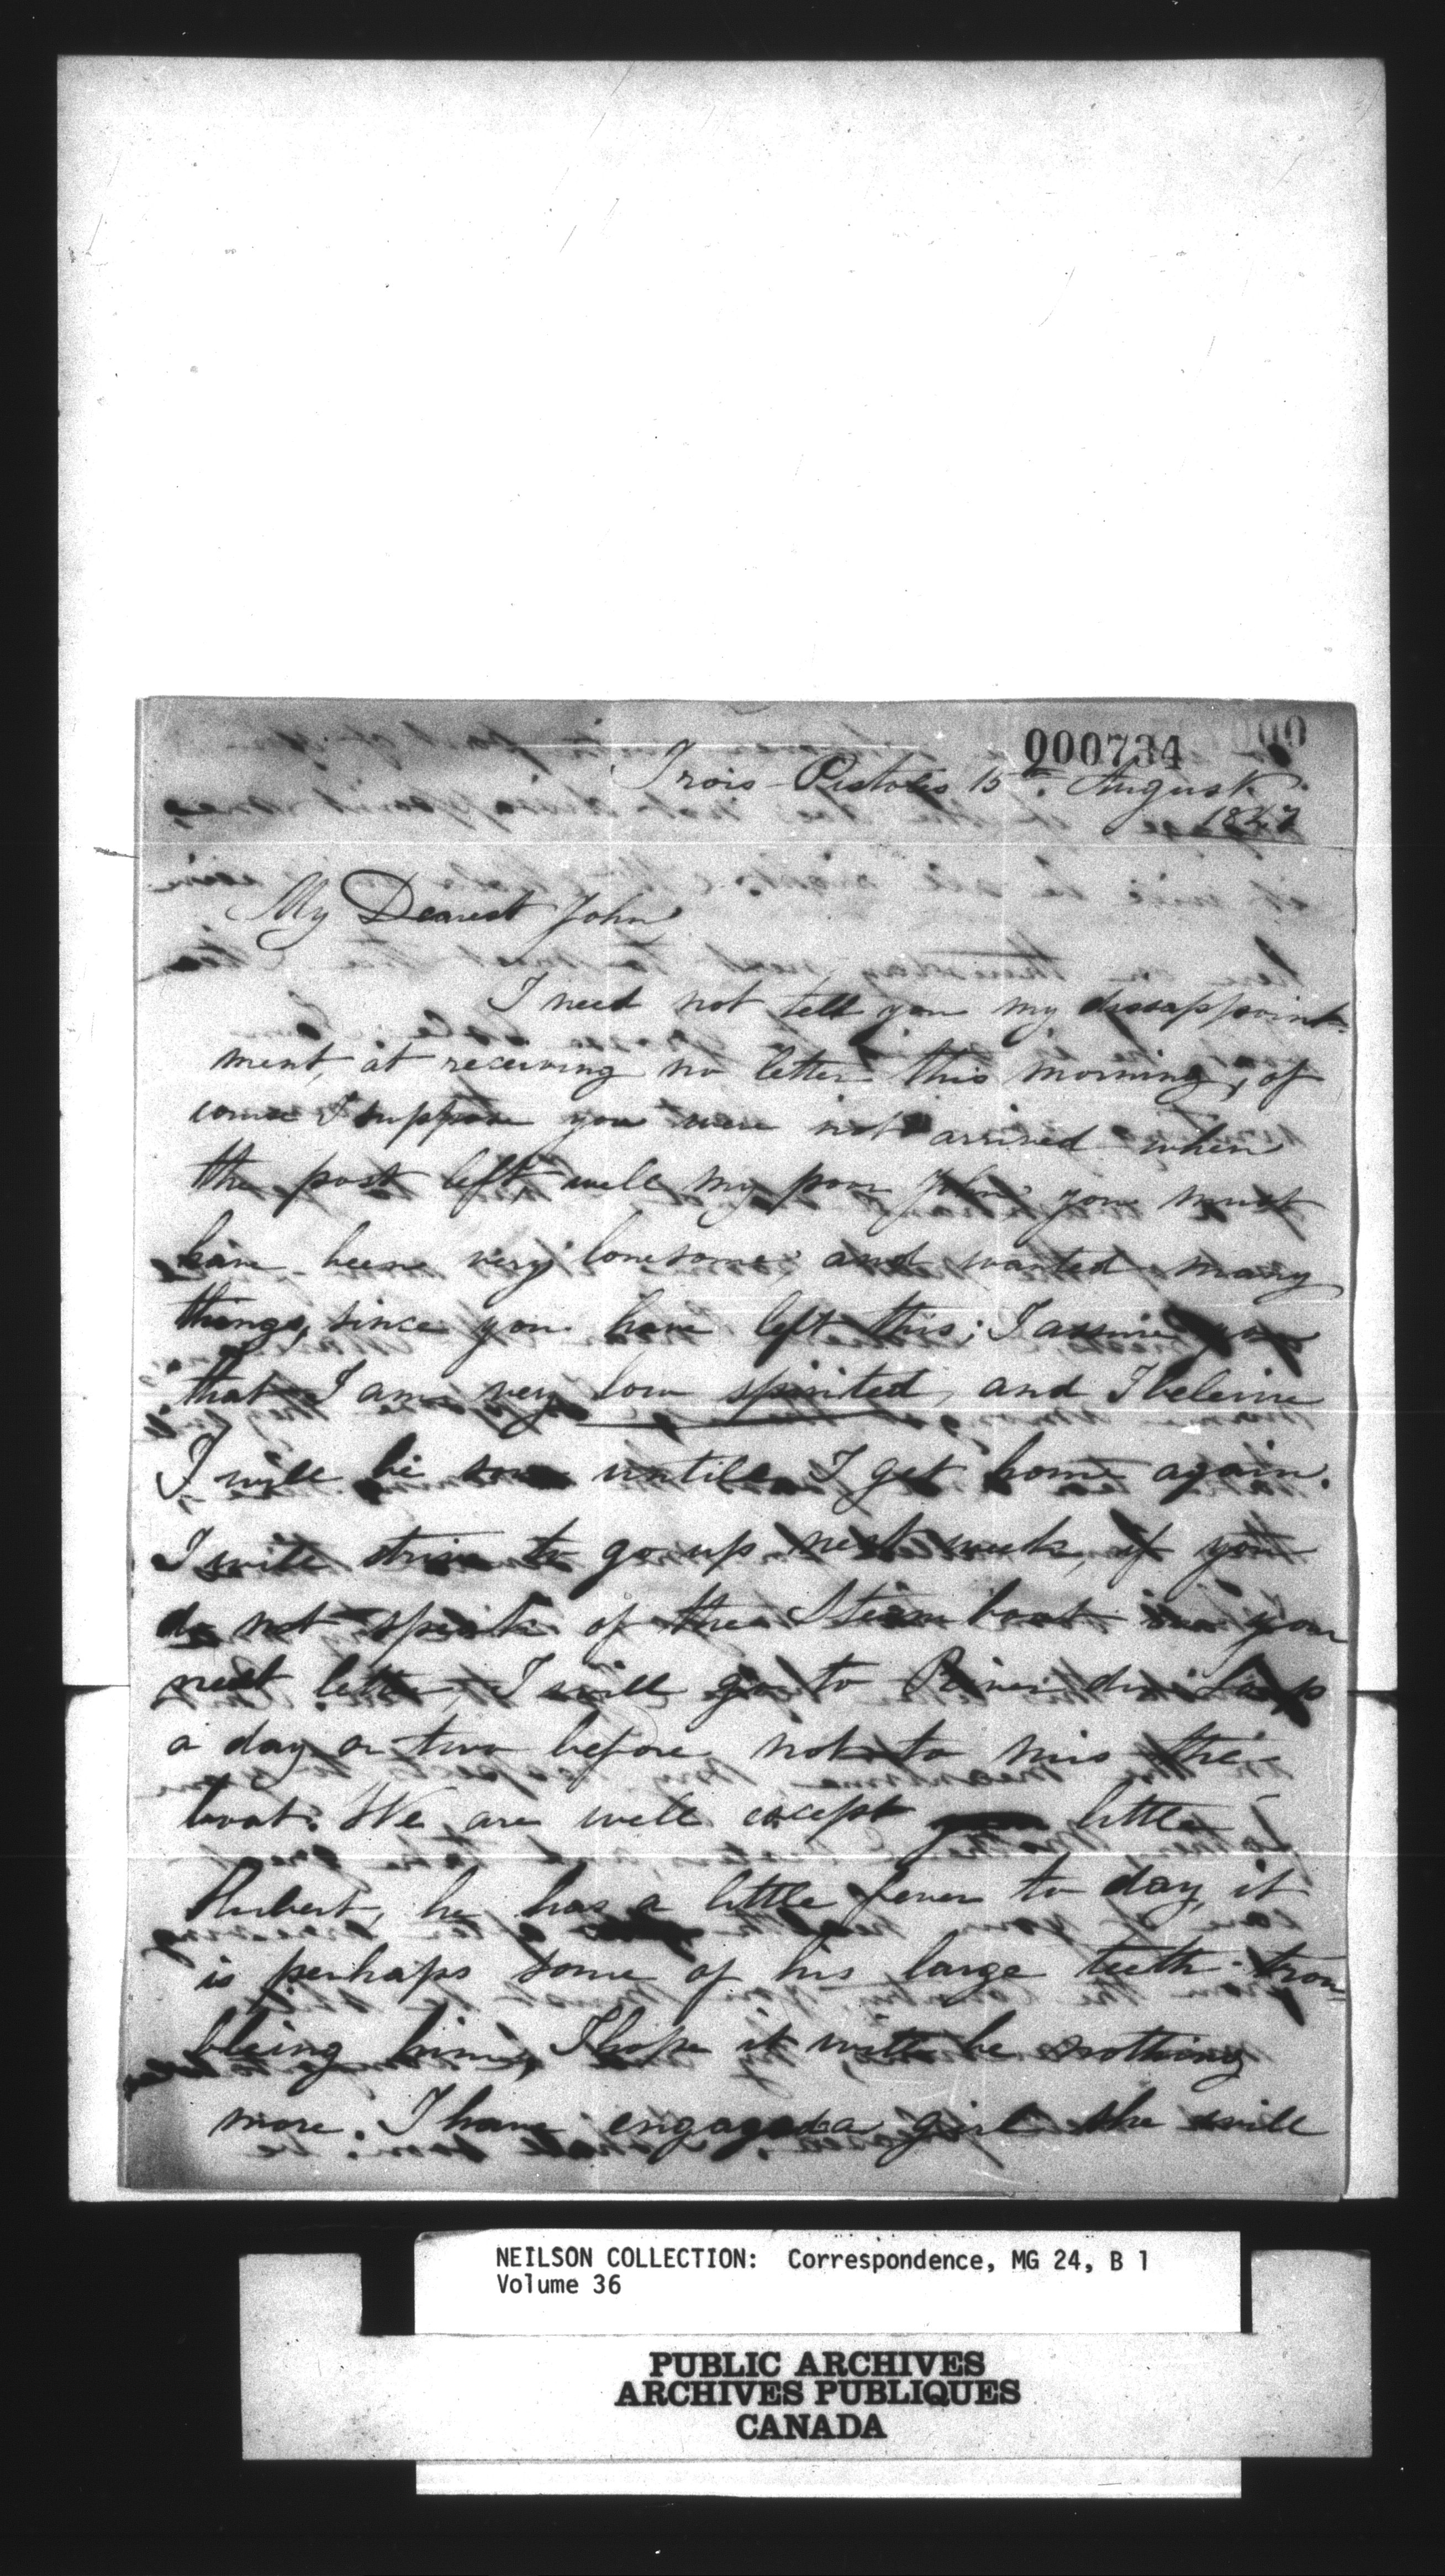 000734
Trois-Pistoles 15th. August
1847
My Dearest John
I need not tell you my dissappoint-
ment, at receiving no letter this morning, of
course I suppose you were not arrived when
the post left well my poor John, you must
have been very lonesome, and wanted many
things, since you have left this; I assure you
that I am very low spirited, and I beleive
I will be so untill I get home again.
I will strive to go up next week, if you
do not speak of the Steam boat in your
next letter, I will go to River du Loup
a day or two before not to miss the
boat. We are well except little
Hubert, he has a little fever to day, it
is perhaps some of his large teeth trou=
bleing him, I hope it will be nothing
more. I have engaged a girl she will
NEILSON COLLECTION: Correspondence, MG 24, B 1
Volume 36
PUBLIC ARCHIVES
ARCHIVES PUBLIQUES
CANADA